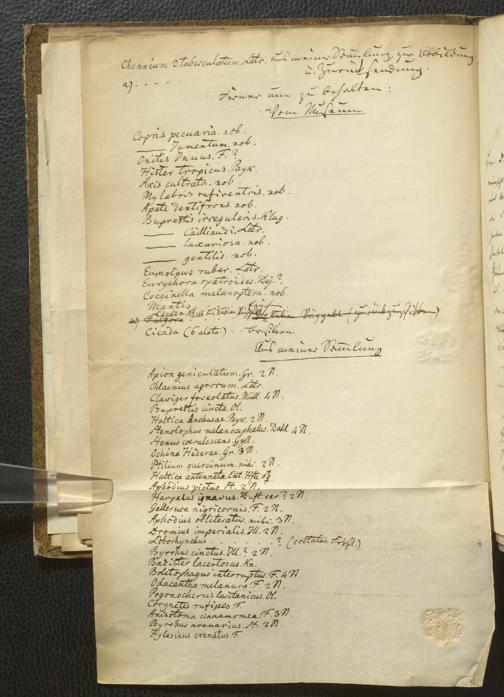 Chennium 2tuberculatum. Latr. aus meiner Sammlung, zur Abbildung
u. Zurücksendung.
a) . . . . .
Ferner um zu behalten:
Vom Museum
Copris pecuaria. nob.
—— Jumentum. nob.
Onitis Inuus. F.?
Hister tropicus. Payk.
Akis cultrata. nob.
Mylabris rufiventris. nob.
Apate dentifrons. nob.
Buprestis irregularis. Klug.
—— Cailliaudi. Latr.
—— luxuriosa. nob.
—— gentilis. nob.
Eumolpus ruber. Latr.
Eurychora opatroides. Dej.?
Coccinella melanoptera. nob.
Mantis
Cicada
Cicada (6 alata) . Brasilien.
Aus meiner Sammlung
Apion geniculatum. Gr. 2
Chlaenius agrorum. Latr.
Claviger foveolatus. Müll. 4
Buprestis cincta. Ol.
Haltica Anchusae. Payk. 2
Stenolophus melanocephalus. Dahl 4
Stenus coerulescens. Gyll.
Ochina Hederae. Gr. 3
Ptilium quercinum. mihi. 2
Haltica antennata. Ent. Hfte
Aphodius pictus. St. 2
Harpalus ignavus. Duft. var? 2
Galleruca nigricornis. F. 2
Aphodius obliteratus. mihi. 3
Dromius imperialis. 2
Lobothynchus . . . . . . ? (costatus.
Byrrhus cinctus. Ill.? 2
Badister lacertosus. Kn.
Boletophagus interruptus. F. 4
Odacantha melanura. F. 2
Pogonocherus lusitanicus. Ol.
Corynetes rufipes. F.
Anisotoma cinnamomea. F. 3
Byrrhus arenarius. St. 2
Hylesinus crenatus. F.